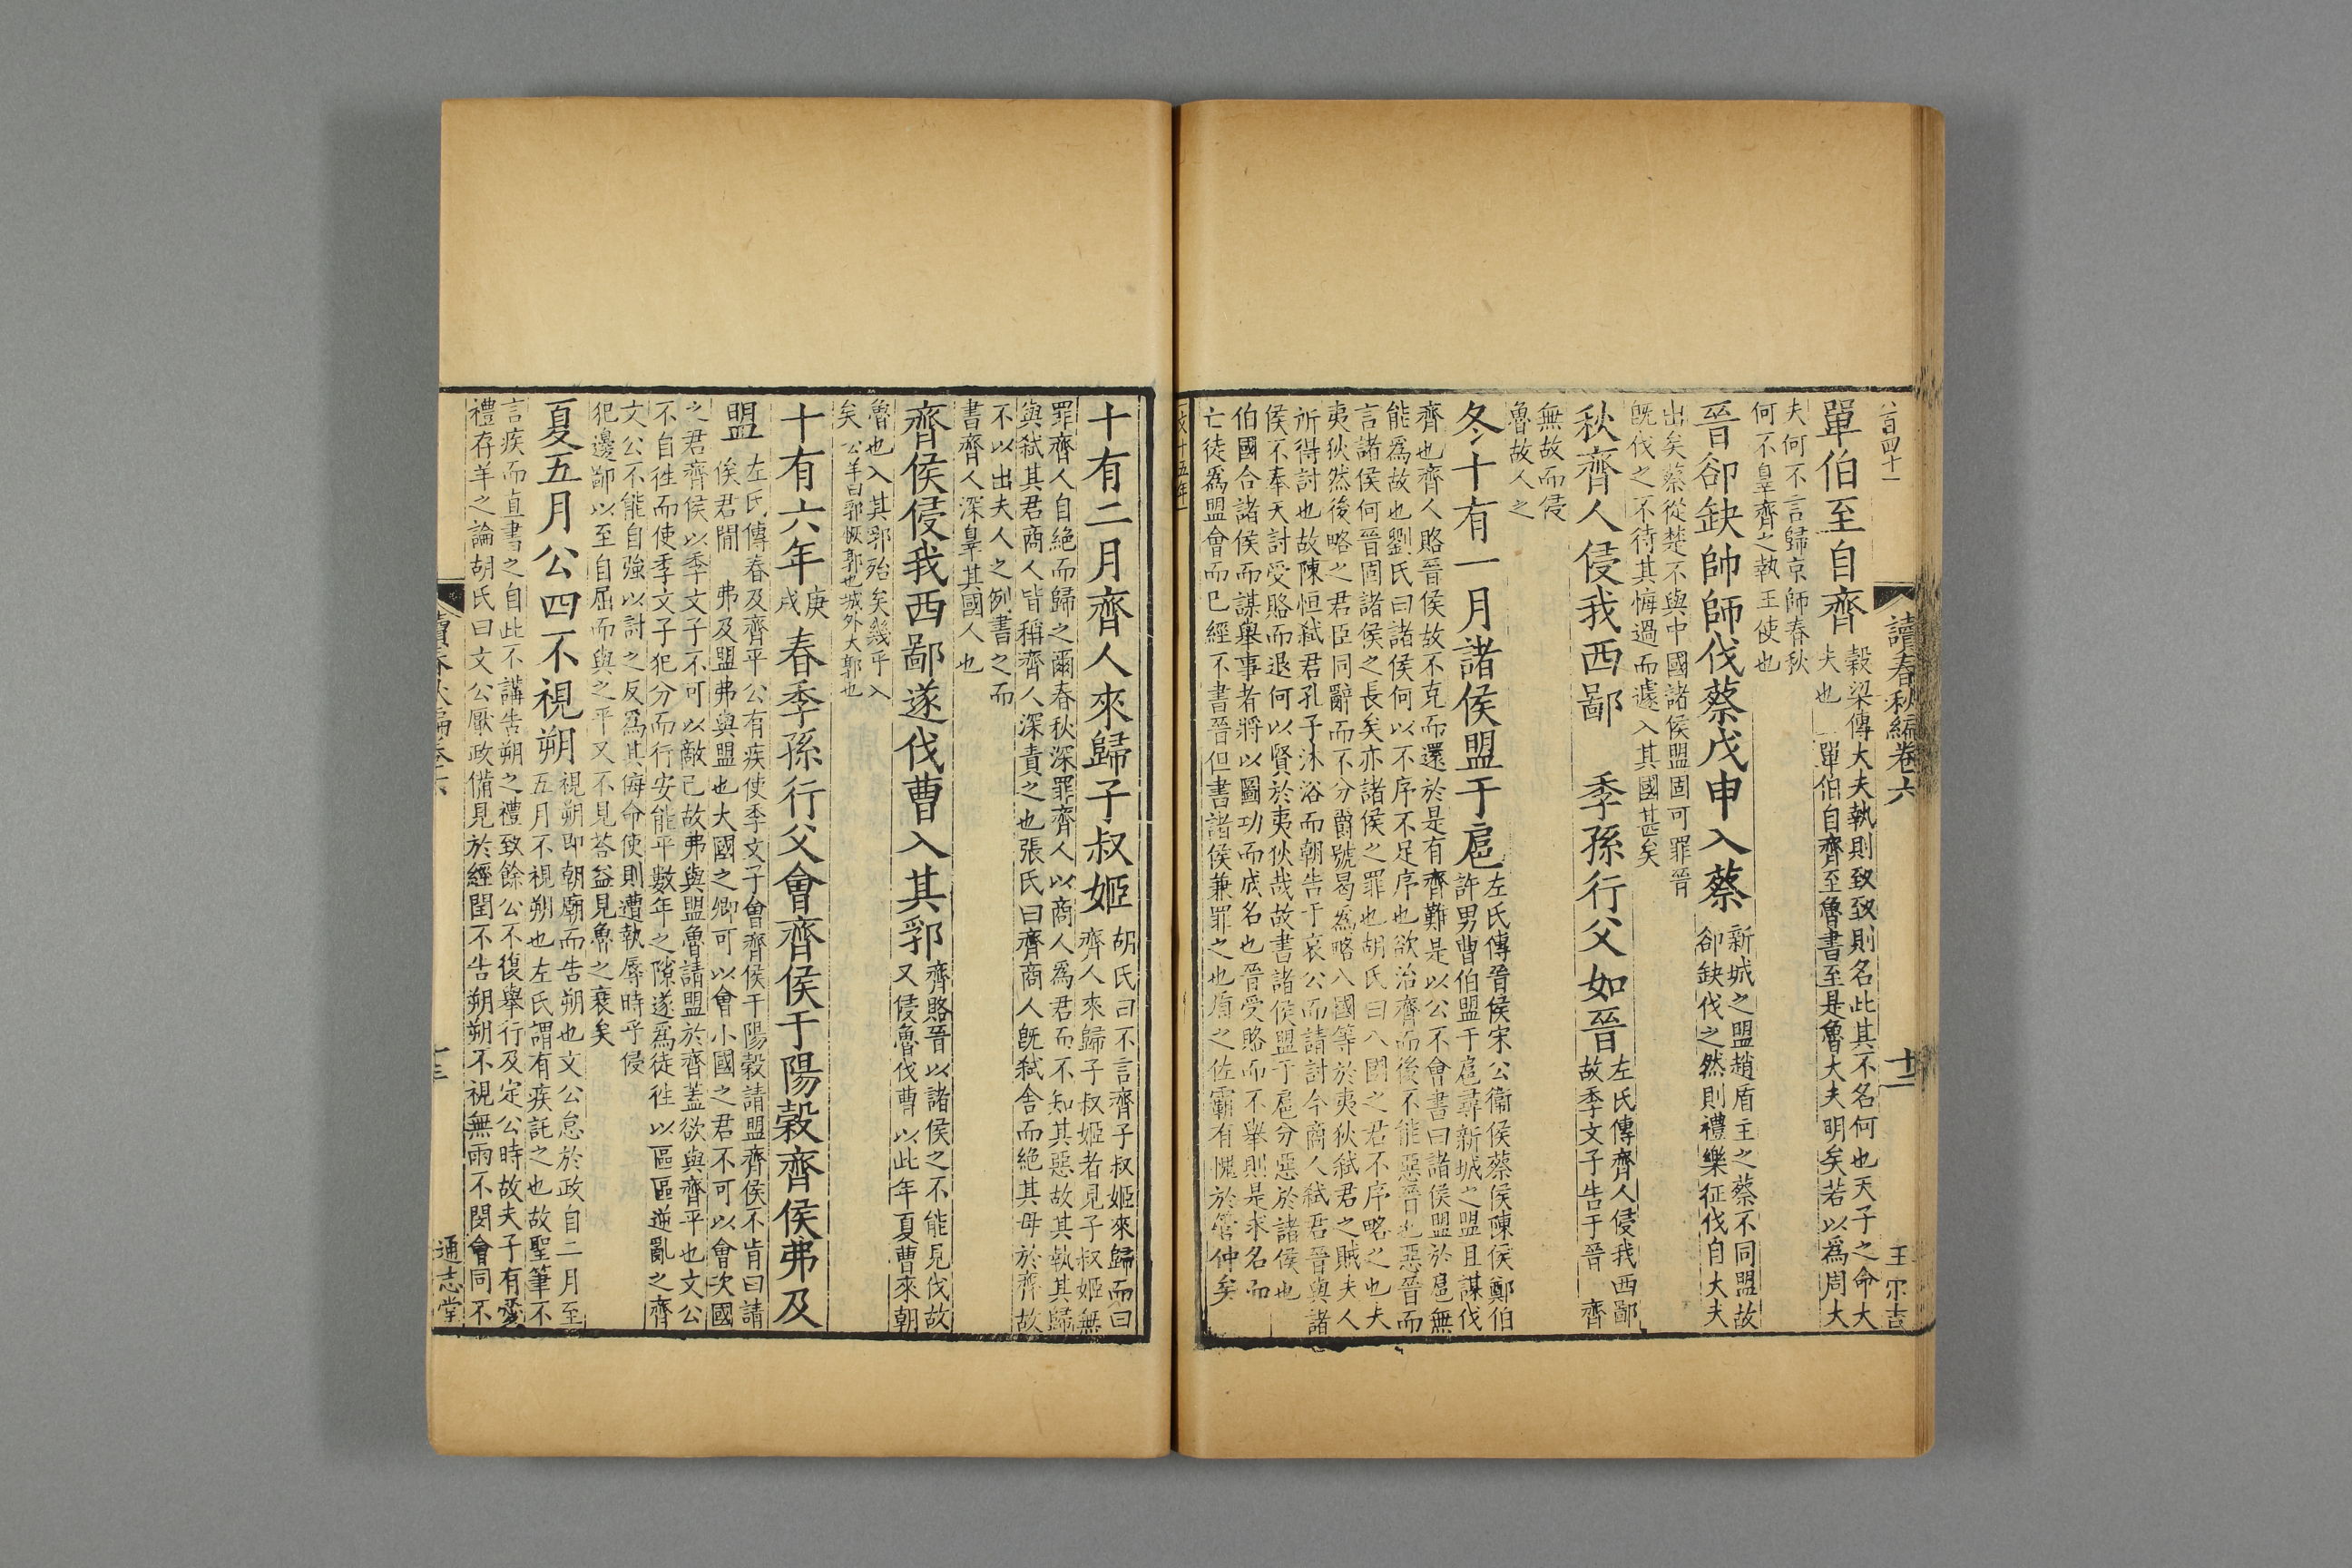 讀春秋編卷六
十二
王尔吉
單伯至自齊
穀梁傳大夫執則致致則名此其不名何也天子之命大
夫也 單伯自齊至魯書至是魯大夫明矣若以爲周大
夫何不言歸京師春秋
何不辠齊之執王使也
晉郤缺帥師伐蔡戊申入蔡
新城之盟趙盾主之蔡不同盟故
郤缺伐之然則禮樂征伐自大夫
出矣蔡從楚不與中國諸侯盟固可罪晉
旣伐之不待其悔過而遽入其國甚矣
秋齊人侵我西鄙 季孫行父如晉
左氏傳齊人侵我西鄙
故季文子告于晉 齊
無故而侵
魯故人之
冬十有一月諸侯盟于扈
左氏傳晉侯宋公衞侯蔡侯陳侯鄭伯
許男曹伯盟于扈尋新城之盟且謀伐
齊也齊人賂晉侯故不克而還於是有齊難是以公不會書曰諸侯盟於扈無
能爲故也劉氏曰諸侯何以不序不足序也欲治齊而後不能惡晉也惡晉而
言諸侯何晉固諸侯之長矣亦諸侯之罪也胡氏曰八國之君不序略之也夫
夷狄然後略之君臣同辭而不分爵號曷爲略八國等於夷狄弑君之賊夫人
所得討也故陳恒弑君孔子沐浴而朝告于哀公而請討今商人弑君晉與諸
侯不奉天討受賂而退何以賢於夷狄哉故書諸侯盟于扈分惡於諸侯也
伯國合諸侯而謀舉事者將以圖功而成名也晉受賂而不舉則是求名而
亡徒爲盟會而已經不書晉但書諸侯兼罪之也盾之佐霸有愧於管仲矣
十有二月齊人來歸子叔姬
胡氏曰不言齊子叔姬來歸而曰
齊人來歸子叔姬者見子叔姬無
罪齊人自絕而歸之爾春秋深罪齊人以商人爲君而不知其惡故其執其歸
與弑其君商人皆稱齊人深責之也張氏曰齊商人旣弑舍而絕其母於齊故
不以出夫人之例書之而
書齊人深辠其國人也
齊侯侵我西鄙遂伐曹入其郛
齊賂晉以諸侯之不能見伐故
又侵魯伐曹以此年夏曹來朝
魯也入其郛殆矣幾乎入
矣 公羊曰郛恢郭也城外大郭也
十有六年
庚
戌
春季孫行父會齊侯于陽穀齊侯弗及
盟
左氏傳春及齊平公有疾使季文子會齊侯于陽穀請盟齊侯不肯曰請
俟君間 弗及盟弗與盟也大國之卿可以會小國之君不可以會次國
之君齊侯以季文子不可以敵己故弗與盟魯請盟於齊蓋欲與齊平也文公
不自徃而使季文子犯分而行安能平數年之隙遂爲徒徃以區區逆亂之齊
文公不能自強以討之反爲其侮命使則遭執辱時乎侵
犯邊鄙以至自屈而與之平又不見荅益見魯之衰矣
夏五月公四不視朔
視朔即朝廟而告朔也文公怠於政自二月至
五月不視朔也左氏謂有疾託之也故聖筆不
言疾而直書之自此不講告朔之禮致餘公不復舉行及定公時故夫子有愛
禮存羊之論胡氏曰文公厭政備見於經閏不告朔朔不視無雨不閔會同不
通志堂